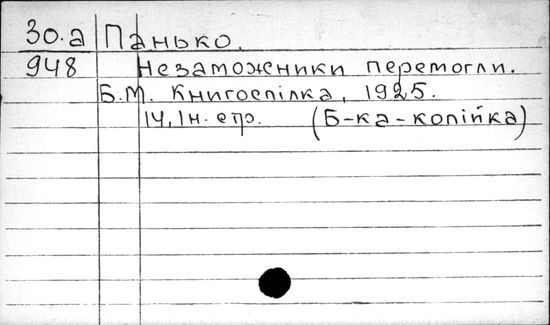 30.а Панько.
948 Незаможники перемогли.
Б.М. Книгоспілка, 1925.
14, 1н. стр. (Б-ка-копійка)